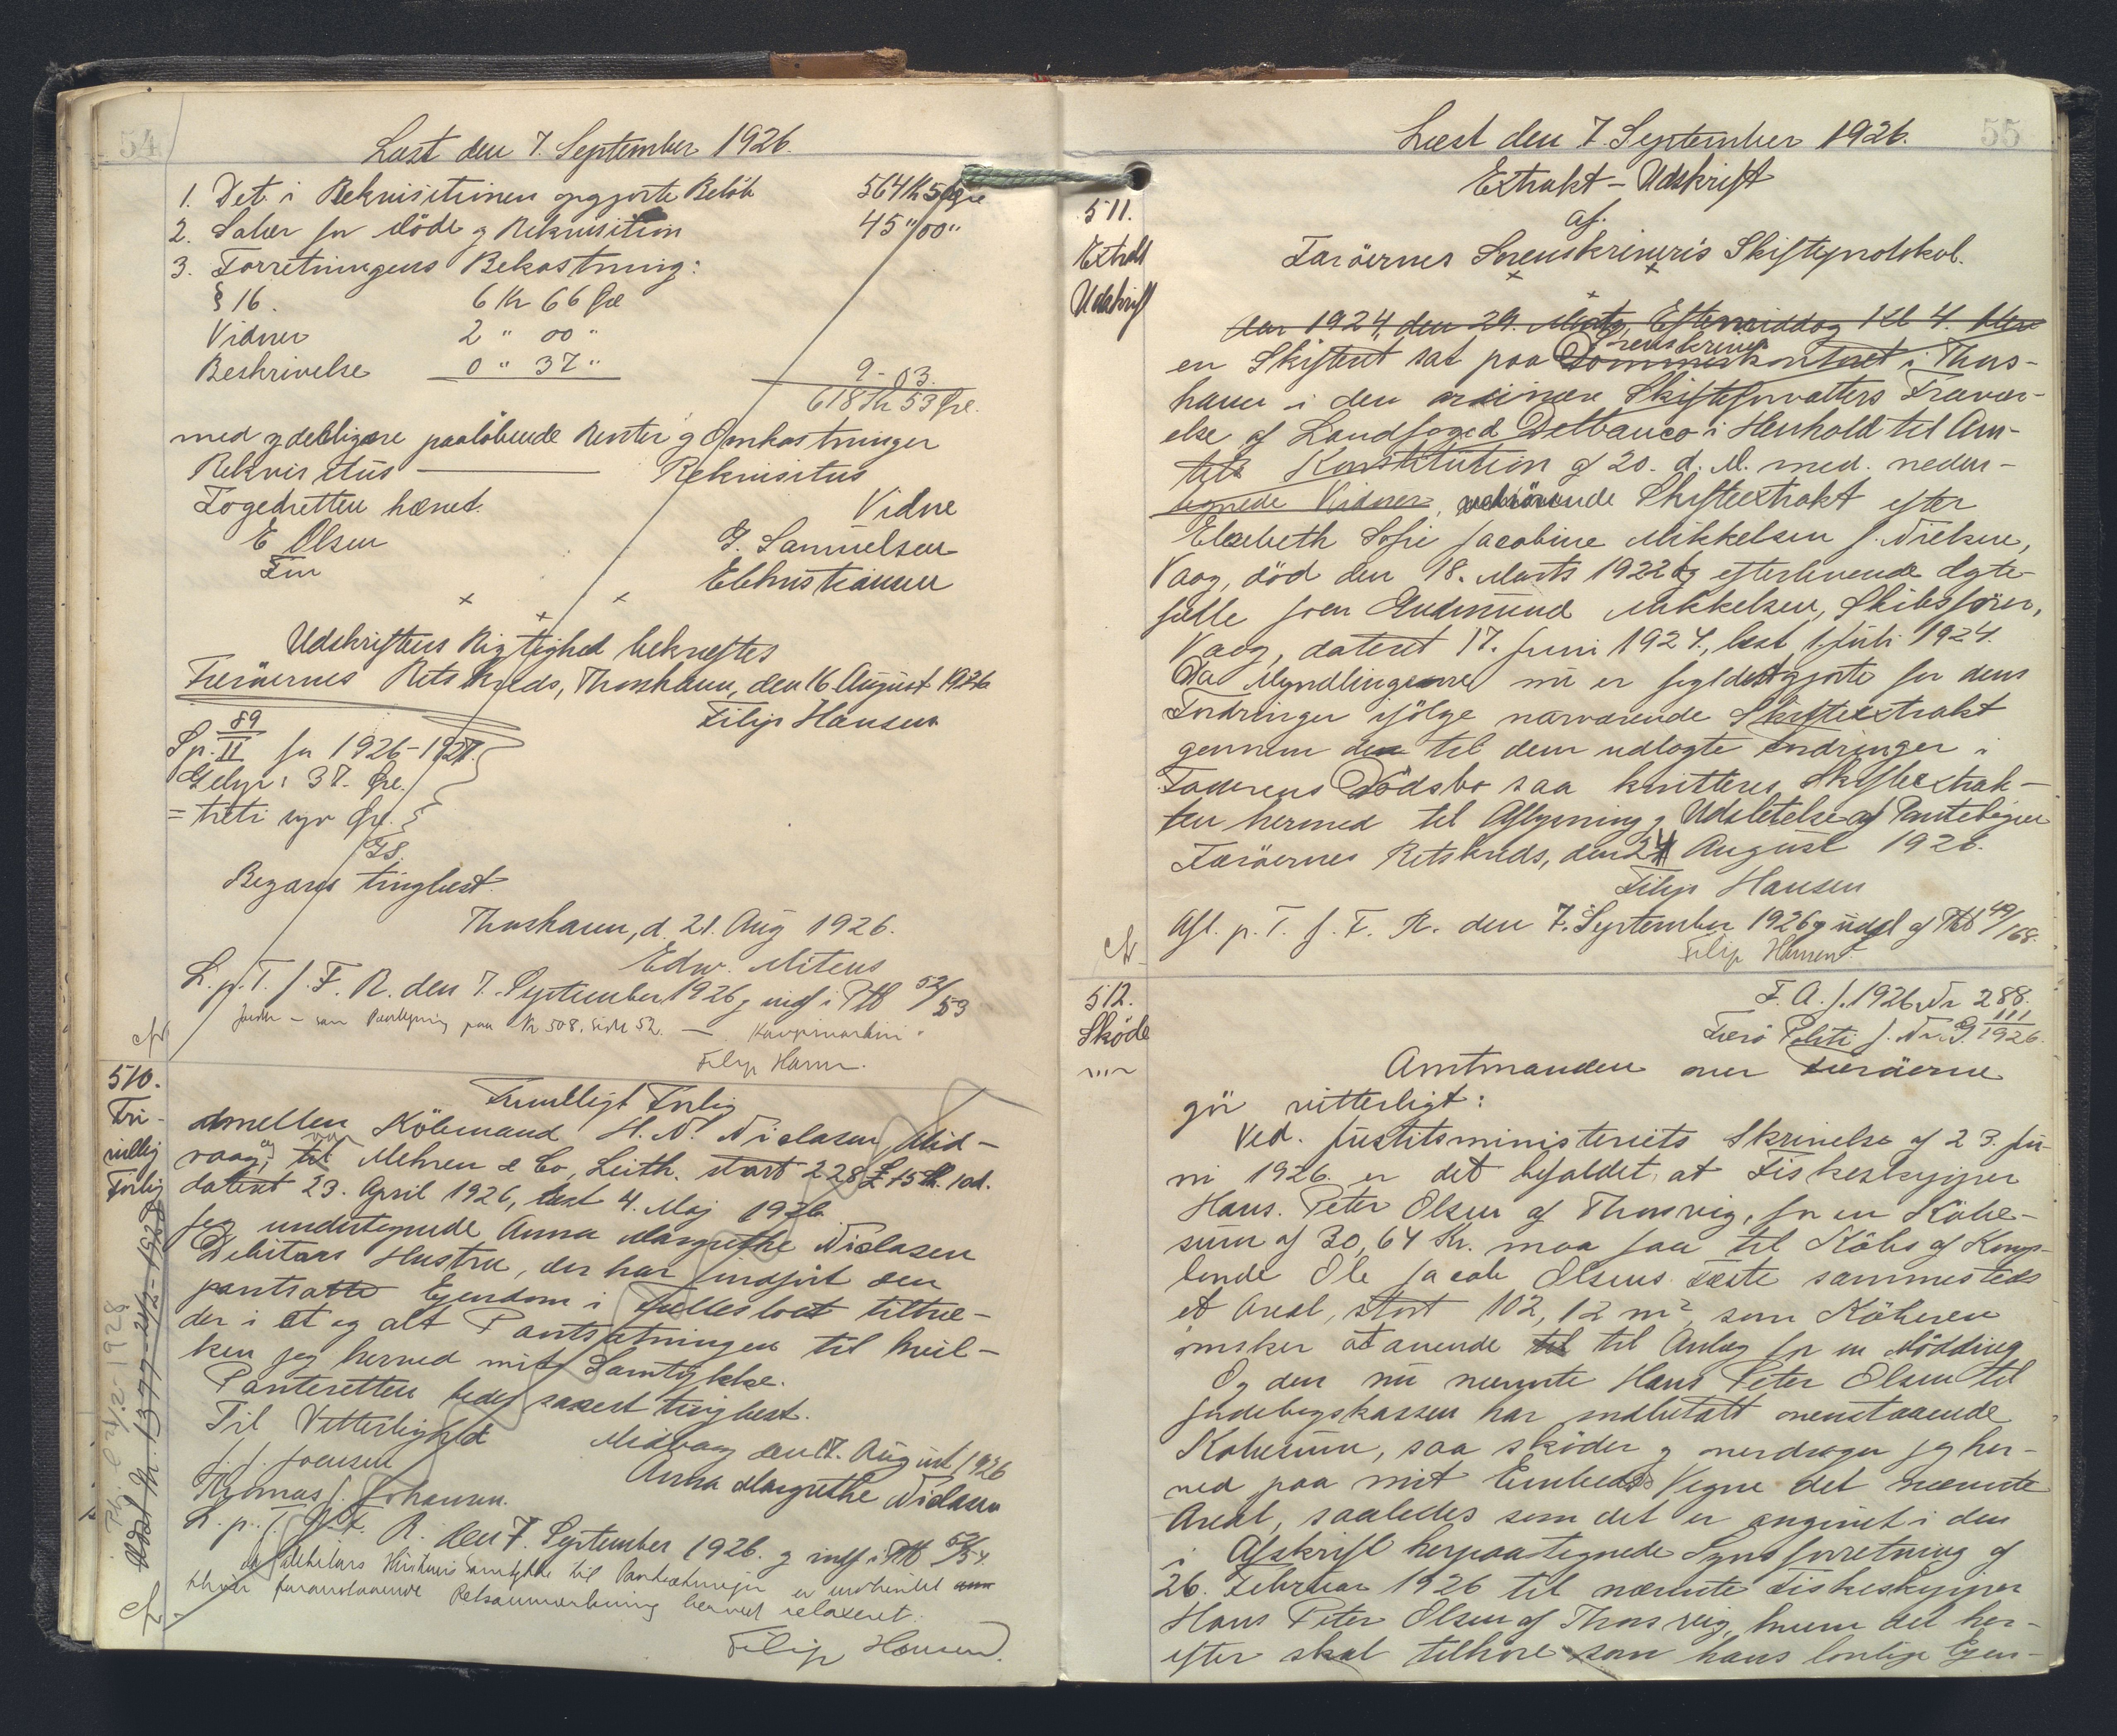 54
Læst den 7. September 1926.
1. Det i Rekvisitionen opgjorte Beløb 564 Kr 50 Øre
2. Salær for Møde og Rekvisition 45 " 00 "
3. Forretningens Bekostning:
§ 16. 6 Kr 66 Øre
Vidner 2 " 00 "
Beskrivelse 0 " 37 " 9 - 03.
618 Kr 53 Øre.
med yderligere paaløbende Renter og Omkostninger
Rekvisitus Rekvisitus
Fogedretten hævet. Vidne
E Olsen G. Samuelsen
Fm EChristiansen
Udskriftens Rigtighed bekræftes
Færøernes Retskreds, Thorshavn, den 16 August 1926
Filip Hansen
Sp. 89/II for 1926-1927.
Gebyr: 37. Øre.
= treti syv Øre.
GS.
Begæres tinglæst.
Thorshavn, d. 21. Aug 1926.
Edw. Mitens
L. p. T. f. F. R. den 7. September 1926 og indf i Ptb 52/53
Nr 508, Side 52.
Filip Hansen.
510.
Fri-
villig
Forlig
Frivilligt Forlig
mellem Købmand H. N. Niclasen, Mid-
vaag, og Mehren & Co, Leith. stort 228 £ 15 sh. 10d.
dateret 23. April 1926, læst 4. Maj 1926.
Jeg undertegnede Anna Margrethe Niclasen
Debitors Hustru, der har indført den
pantsatte Ejendom i Fællesboet tiltræ-
der i et og alt Pantsætningen til hvil-
ken jeg herved mit Samtykke.
Panteretten bedes saaest tinglæst.
Til Vitterlighed Midvaag den 17. August 1926
J. J. Joensen Anna Margrethe Niclasen
Thomas J. Johansen.
L. p. T. f. F. R. den 7. September 1926. og indf i Ptb 52/54.
da debitors Hustrus Samtykke til Pantsætningen er indhentet
bliver foranstaaende Retsanmærkning herved relaxeret.
Filip Hansen.
55
Læst den 7. September 1926.
511.
Extrakt
Udskrift
Extrakt-Udskrift
af
Færøernes Sorenskriveris Skifteprotokol.
Aar 1924, den 29. Marts, Eftermiddag Kl 4. blev
en Skifteret sat paa Sorenskriver Dommerkontoret i Thors-
havn i den ordinære Skifteforvalters Fravær-
else af Landfoged Delbanco i Henhold til Am-
tets Konstitution af 20. d. M. med neden-
tegnede Vidner, vedrørende Skifteextrakt efter
Elsebeth Sofie Jacobine Mikkelsen f. Nielsen,
Vaag, død den 18. Marts 1922 og efterlevende Ægte-
fælle Joen Gudmund Mikkelsen, Skibsfører,
Vaag, dateret 17. Juni 1924., læst 1 Juli 1924.
Da Myndlingerne nu er fyldestgjorte for deres
Fordringer ifølge nærværende Skifteextrakt
gennem de til dem udlagte Fordringer i
Faderens Dødsbo saa kvitteres Skifteextrak-
ten hermed til Aflysning og Udslettelse af Pantebogen
Færøernes Retskreds, den 24 August 1926.
Filip Hansen
Afl. p. T. f. F. R. den 7. September 1926 og udsl af Ptb 49/168.
Filip Hansen.
512.
Skøde
F. A. J. 1926 Nr 288.
Færø Politi J. Nr. G. 111/1926.
Amtmanden over Færøerne
gør vitterligt:
Ved Justitsministeriets Skrivelse af 23. Ju-
ni 1926. er det bifaldet, at Fiskeskipper
Hans Peter Olsen af Thorsvig, for en Købe-
sum af 30,64 Kr. maa faa til Købs af Konge-
lende Ole Jacob Olsens Fæste sammesteds
et Areal, stort 102,12 m², som Køberen
ønsker at anvende til til Anlæg for en Mødding.
Og den nu nævnte Hans Peter Olsen til
Jordebogskassen har indbetalt ovenstaaende
Købesum, saa skøder og overdrager jeg her-
ved paa mit Embeds Vegne det nævnte
Areal, saaledes som det er angivet i den
i Afskrift herpaategnede Synsforretning af
26. Februar 1926 til nævnte Fiskeskipper
Hans Peter Olsen af Thorsvig, hvem det her-
efter skal tilhøre som hans lovlige Ejen-